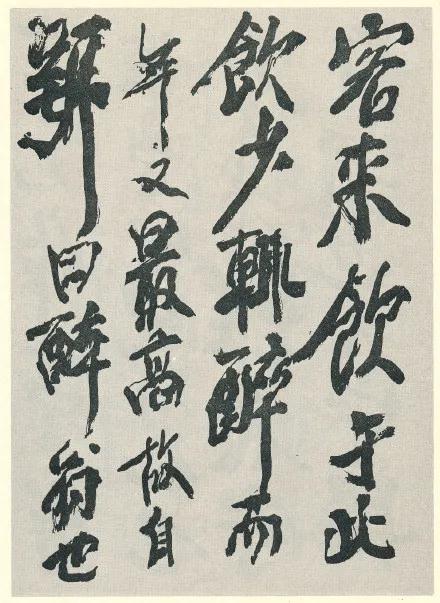 客来飲于此
飲少輒醉而
年又最高故自
號曰醉翁也